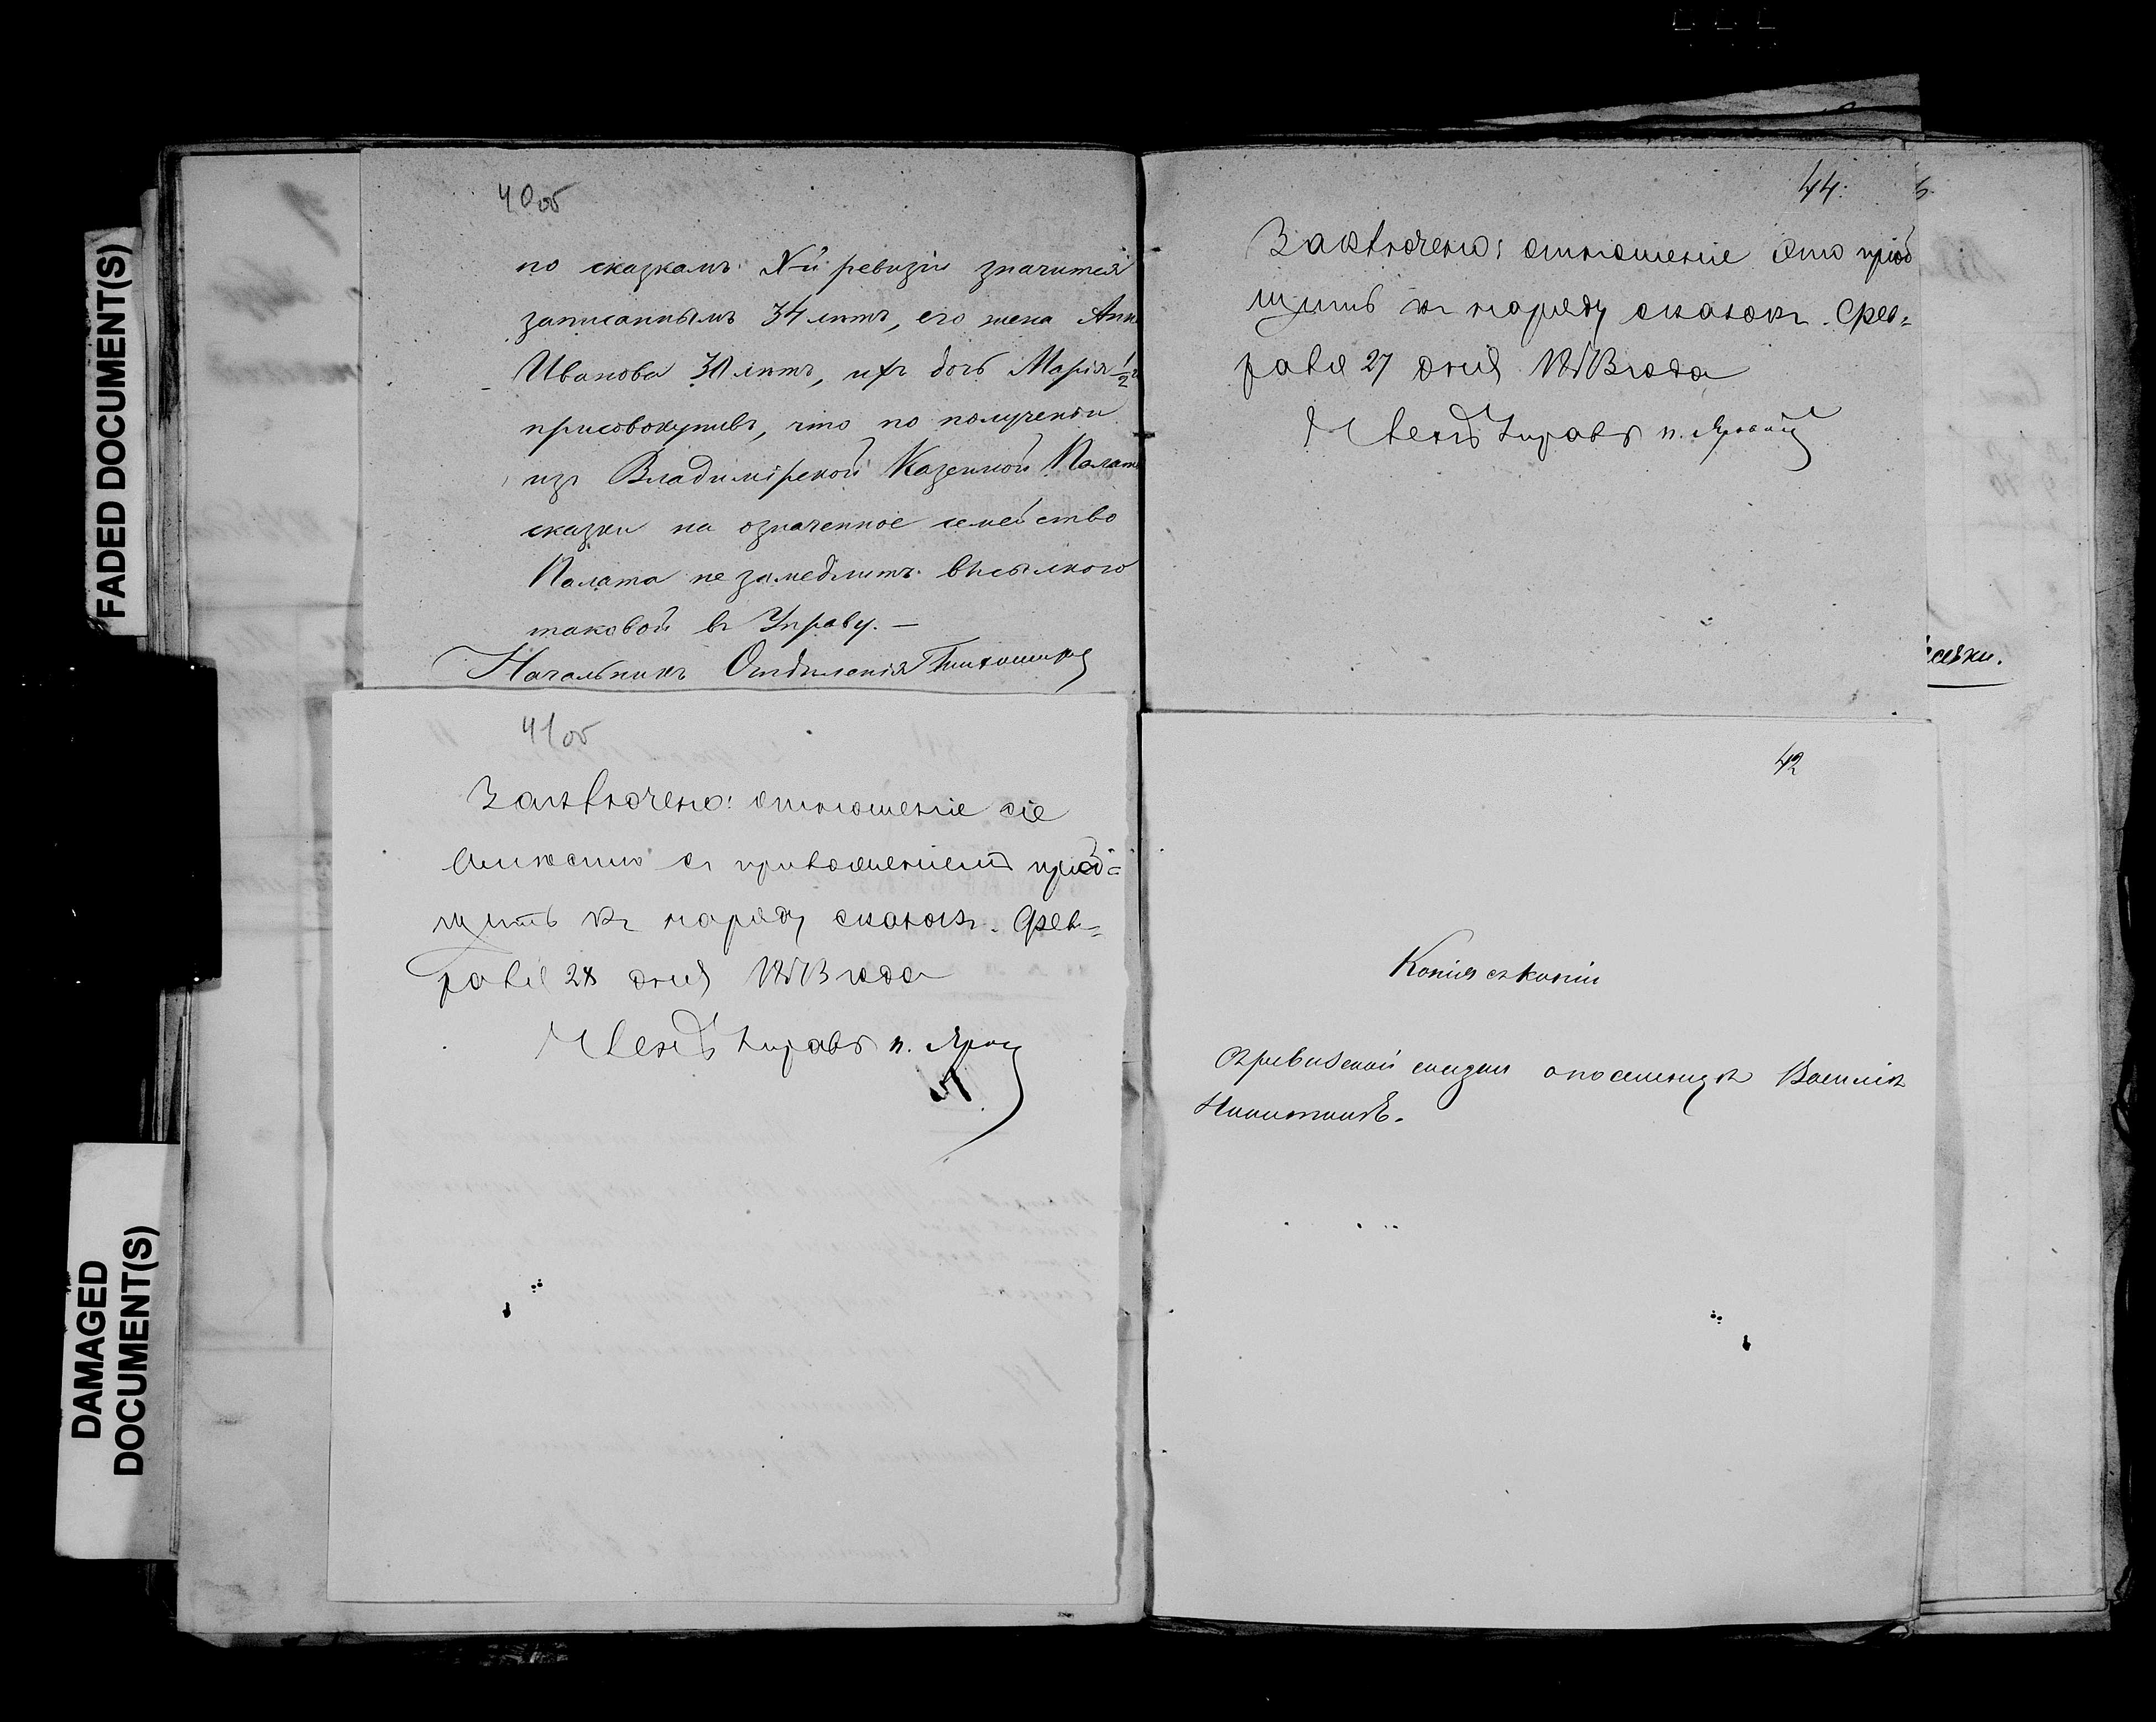 FADED DOCUMENT(S)
DAMAGED
DOCUMENT(S)
40об
по сказкамъ X-й ревизіи значится
записаннымъ 34 лѣтъ, его жена Анн
Иванова 30 лѣтъ, ихъ дочь Марія 1/2
присовокупивъ, что по полученіи
изъ Владимірской Казенной Палат
сказки на означенное семейство
Палата не замедлитъ высылкою
таковой въ Управу. —
Начальникъ Отдѣленія Тихомиров
44.
Заключено: отношеніе это пріоб
щить къ наряду сказокъ. Фев=
раля 27 дня 1873 года
Членъ Управы п.
41об
Заключено: отношеніе сіе
вмѣстѣ съ приложеніемъ пріоб=
щить къ наряду сказокъ. Фев=
раля 28 дня 1873 года
Членъ Управы п.
42
Копія съ копіи
Съ ревизской сказки о поселенцѣ Василіѣ
Никитинѣ.